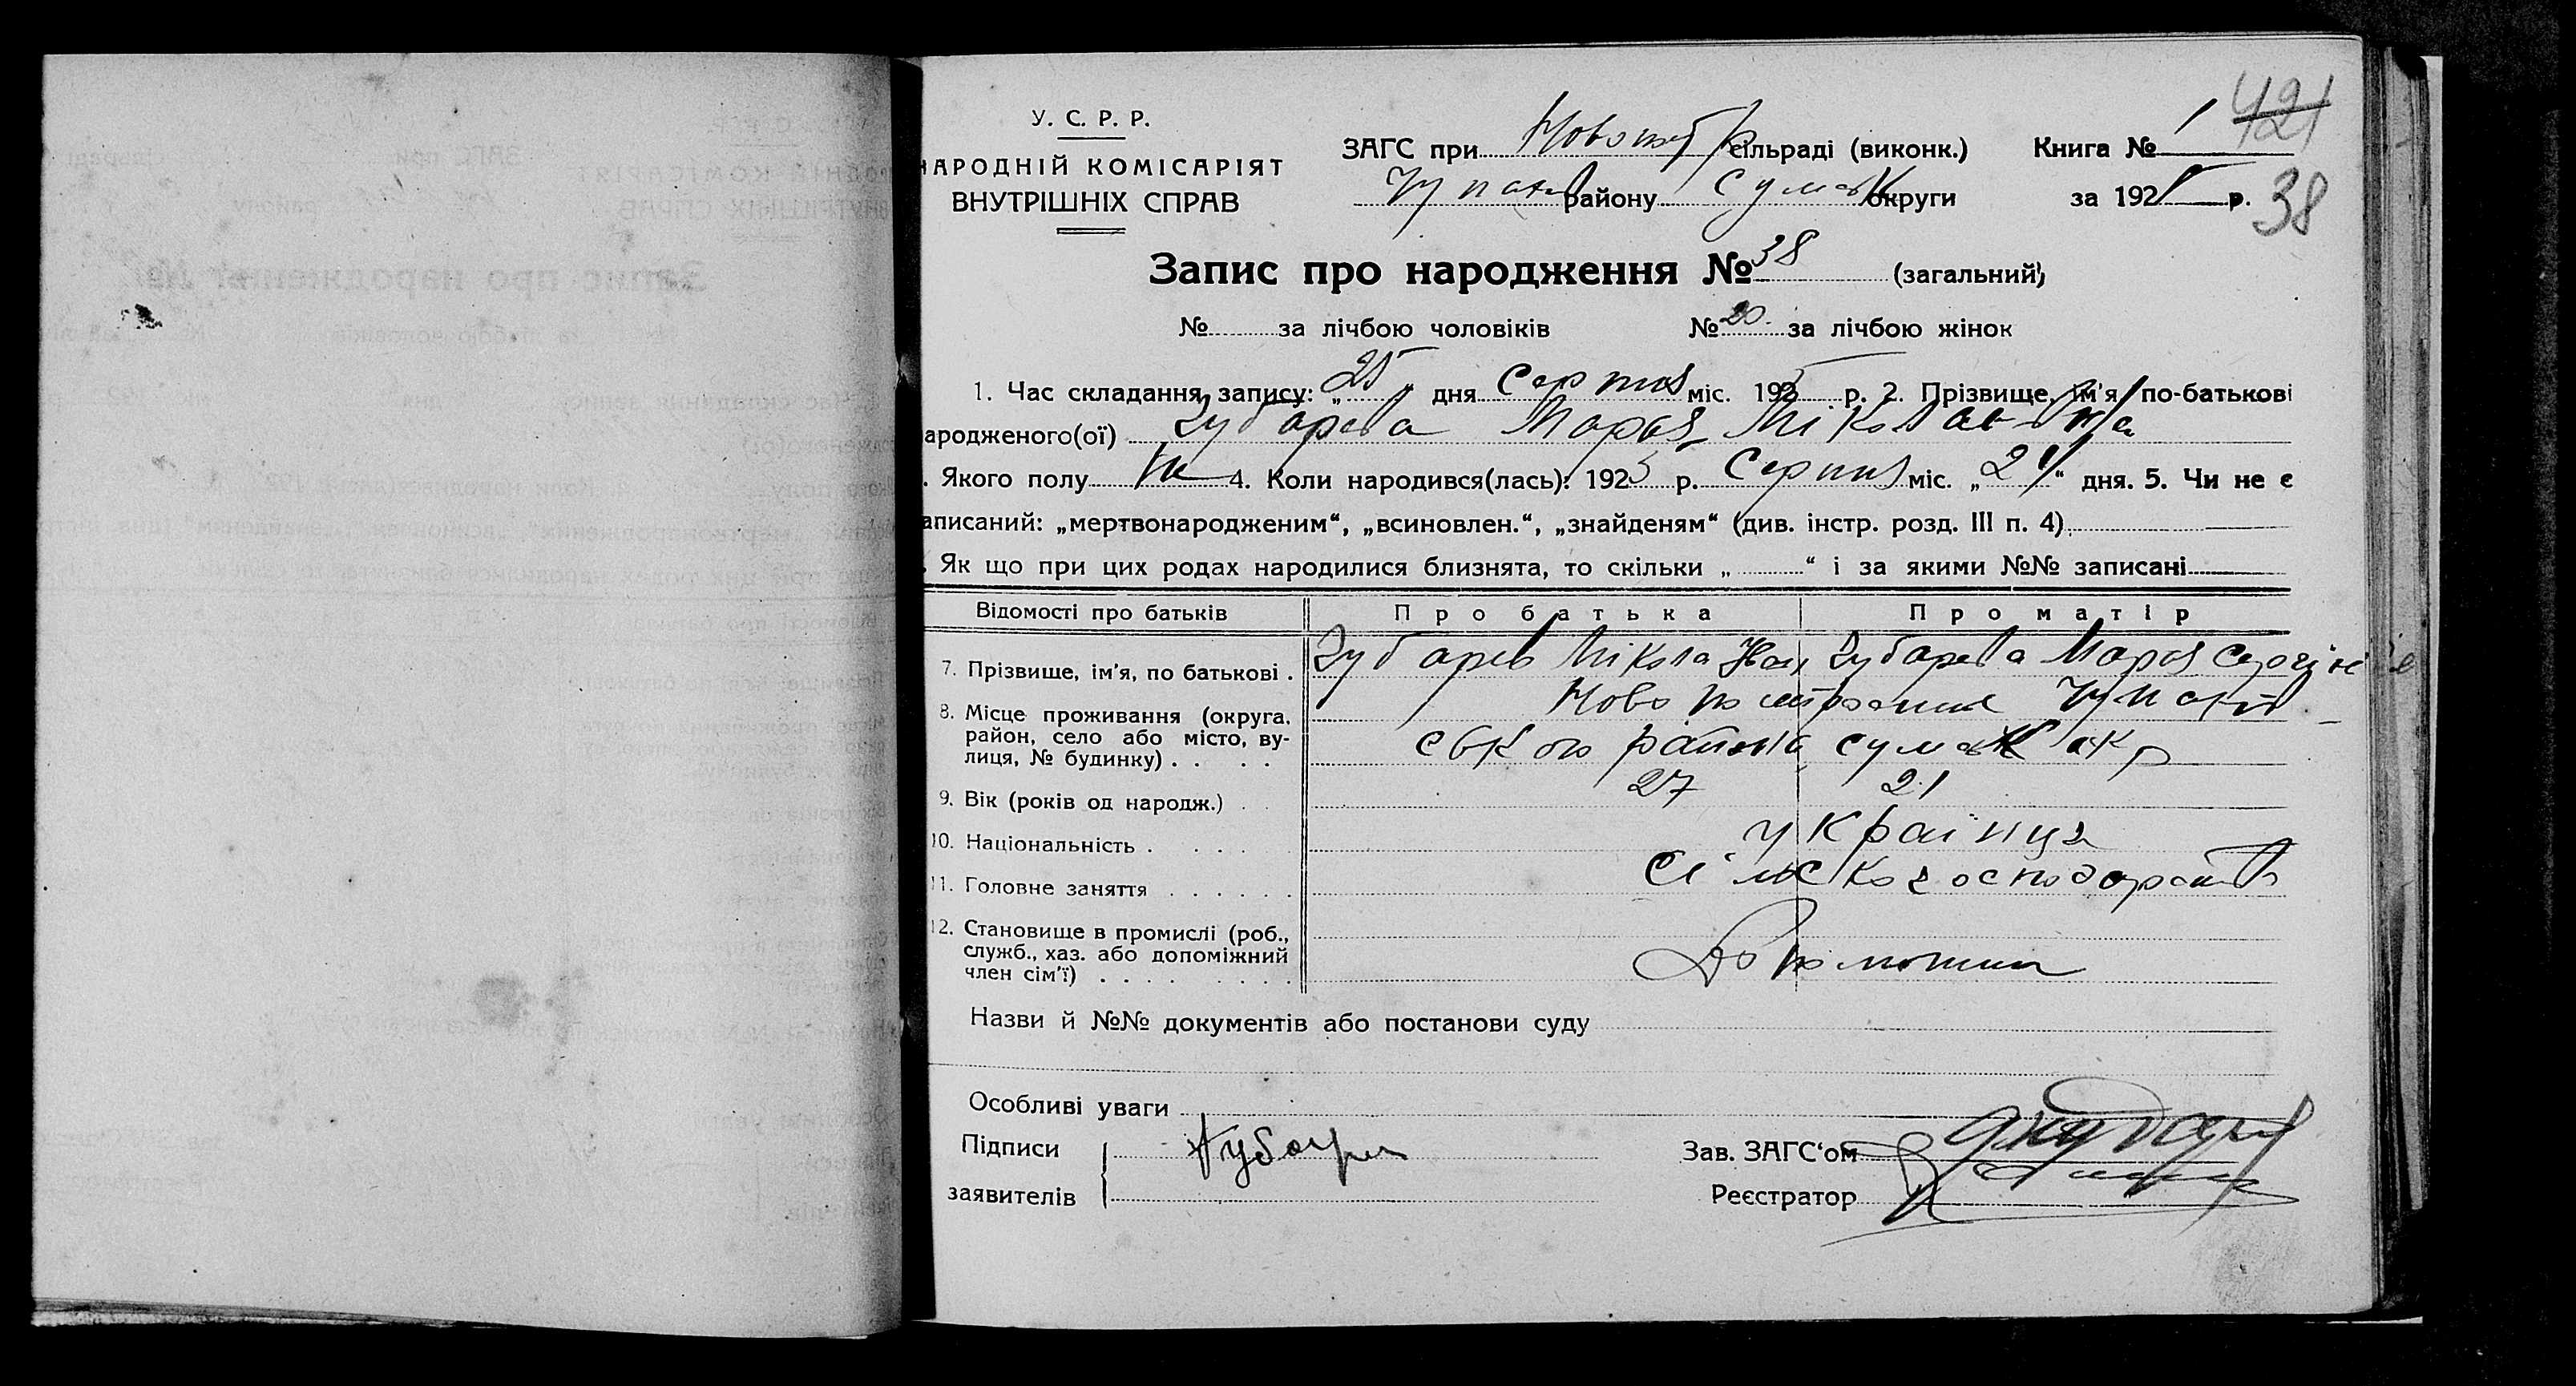 У. С. Р. Р.
НАРОДНІЙ КОМІСАРІЯТ
ВНУТРІШНІХ СПРАВ
ЗАГС при сільраді (виконк.) Книга № 1 421
району Сумськ округи за 1925 р. 38
Запис про народження № 38 (загальний)
№ за лічбою чоловіків № 20. за лічбою жінок
1. Час складання запису: „25“ дня Серпня міс. 1925 р. 2. Прізвище, ім'я, по-батькові
ародженого(ої) Зубарева Марія Міколаівна
. Якого полу ж 4. Коли народився(лась): 1925 р. Серпня міс. „21“ дня. 5. Чи не є
аписаний: „мертвонародженим“, „всиновлен.“, „знайденям“ (див. інстр. розд. III п. 4)
Як що при цих родах народилися близнята, то скільки „ “ і за якими №№ записані
Відомості про батьків Про батька Про матір
7. Прізвище, ім'я, по батькові . Зубарев Мікола Іван Зубарева Марія
8. Місце проживання (округа, район, село або місто, вулиця, № будинку) . . . .
ського района сумськ окр
9. Вік (років од народж.) . . 27 21
10. Національність . . . . . українці
11. Головне заняття . . . . . .
12. Становище в промислі (роб., служб., хаз. або допоміжний член сім'ї) . . . . . . . .
Назви й №№ документів або постанови суду
Особливі уваги
Підписи
заявителів
Зав. ЗАГС'ом
Реєстратор